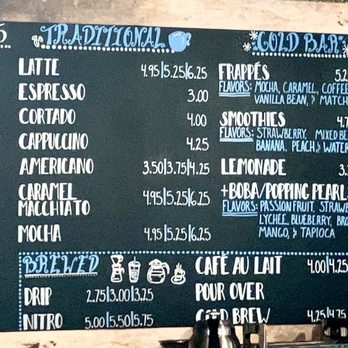 TRADITIONAL
LATTE 4.95|5.25|6.25
ESPRESSO 3.00
CORTADO 4.00
CAPPUCCINO 4.25
AMERICANO 3.50|3.75|4.25
CARAMEL
MACCHIATO 4.95|5.25|6.25
MOCHA 4.95|5.25|6.25
COLD BAR
FRAPPÉS 5.2
FLAVORS: MOCHA, CARAMEL, COFFEE
VANILLA BEAN, & MATCH
SMOOTHIES 4.7
FLAVORS: STRAWBERRY, MIXED BE
BANANA, PEACH, & WATER
LEMONADE 3.
+BOBA/POPPING PEARL
FLAVORS: PASSION FRUIT, STRAWB
LYCHEE, BLUEBERRY, BRO
MANGO, & TAPIOCA
BREWED
DRIP 2.75|3.00|3.25
NITRO 5.00|5.50|5.75
CAFÉ AU LAIT 4.00|4.25
POUR OVER
COLD BREW 4.25|4.75